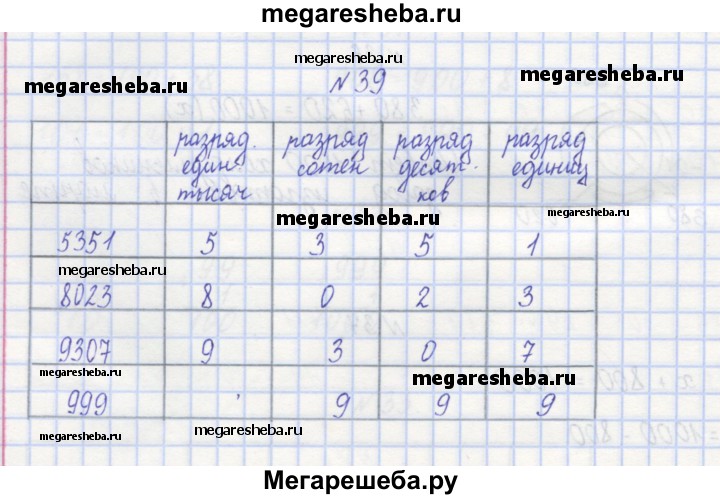 megaresheba.ru
megaresheba.ru
megaresheba.ru
megaresheba.ru
№ 39
разряд. един. тысяч
разряд сотен
разряд десят. ков
разряд единиц
megaresheba.ru
5351 5 3 5 1
megaresheba.ru
8023 8 0 2 3
9307 9 3 0 7
megaresheba.ru
megaresheba.ru
999 9 9 9
megaresheba.ru
megaresheba.ru
Мегарешеба.ру